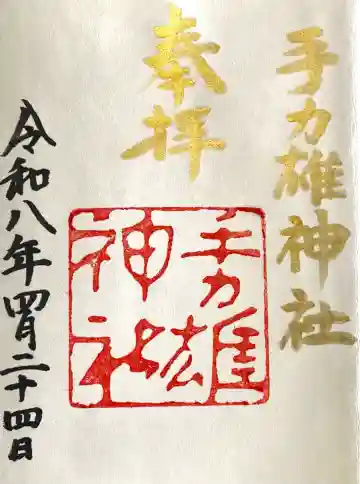 手力雄神社
奉拝
手力雄
神社
令和八年四月二十四日